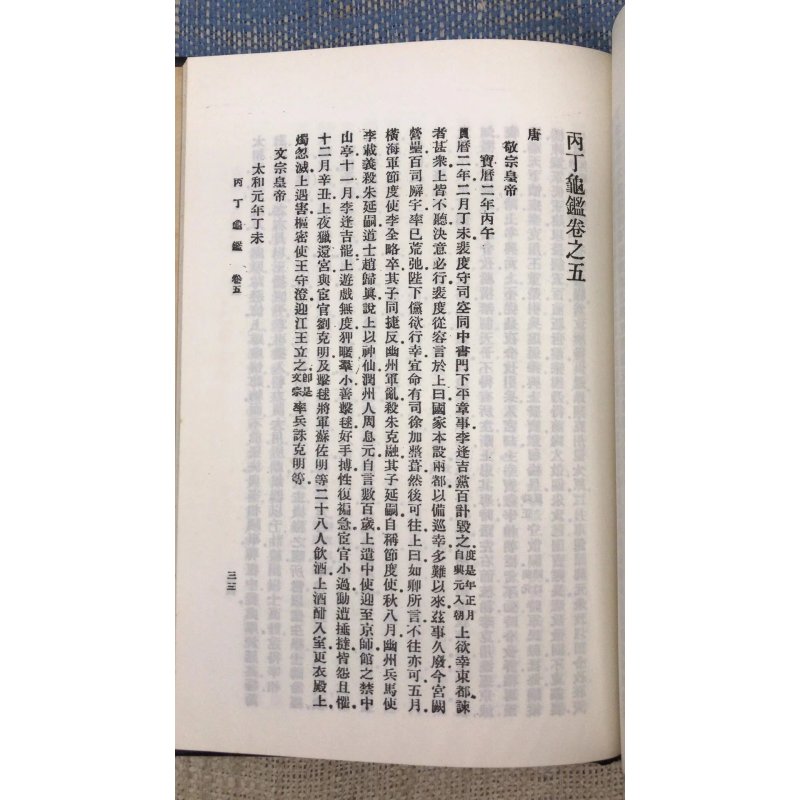 丙丁龜鑑卷之五
唐
敬宗皇帝
寶曆二年丙午
曆二年二月丁未裴度守司空同中書門下平章事李逢吉黨百計毀之度是年正月自興元入朝上欲幸東都諫
者甚衆上皆不聽決意必行裴度從容言於上曰國家本設兩都以備巡幸多難以來茲事久廢今宮闕
營壘百司廨宇率已荒弛陛下儻欲行幸宜命有司徐加葺然後可往上曰如卿所言不往亦可五月
橫海軍節度使李全略卒其子同捷反幽州軍亂殺朱克融其子延嗣自稱節度使秋八月幽州兵馬使
李載義殺朱延嗣道士趙歸眞說上以神仙潤州人周息元自言數百歲上遣中使迎至京師館之禁中
山亭十一月李逢吉罷上遊戲無度狎暱羣小善擊毬好手搏性復褊急宦官小過動遭捶撻皆怨且懼
十二月辛丑上夜獵還宮與宦官劉克明及擊毬將軍蘇佐明等二十八人飲酒上酒酣入室更衣殿上
燭忽滅上遇害樞密使王守澄迎江王立之卽是文宗率兵誅克明等
文宗皇帝
太和元年丁未
丙丁龜鑑 卷五
三三